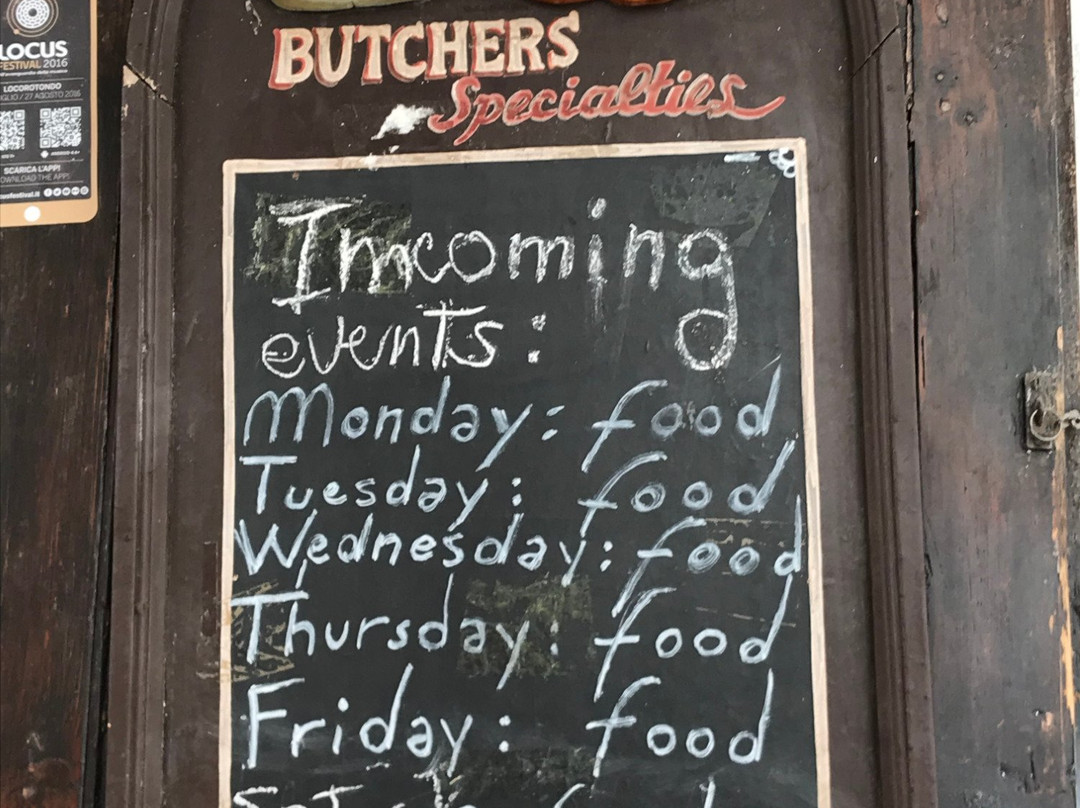 LOCUS
FESTIVAL 2016
LOCOROTONDO
LIO / 27 AGOSTO 2016
SCARICA L'APP!
DOWNLOAD THE APP!
BUTCHERS
Specialties
Imcoming
events:
Monday: food
Tuesday: food
Wednesday: food
Thursday: food
Friday: food